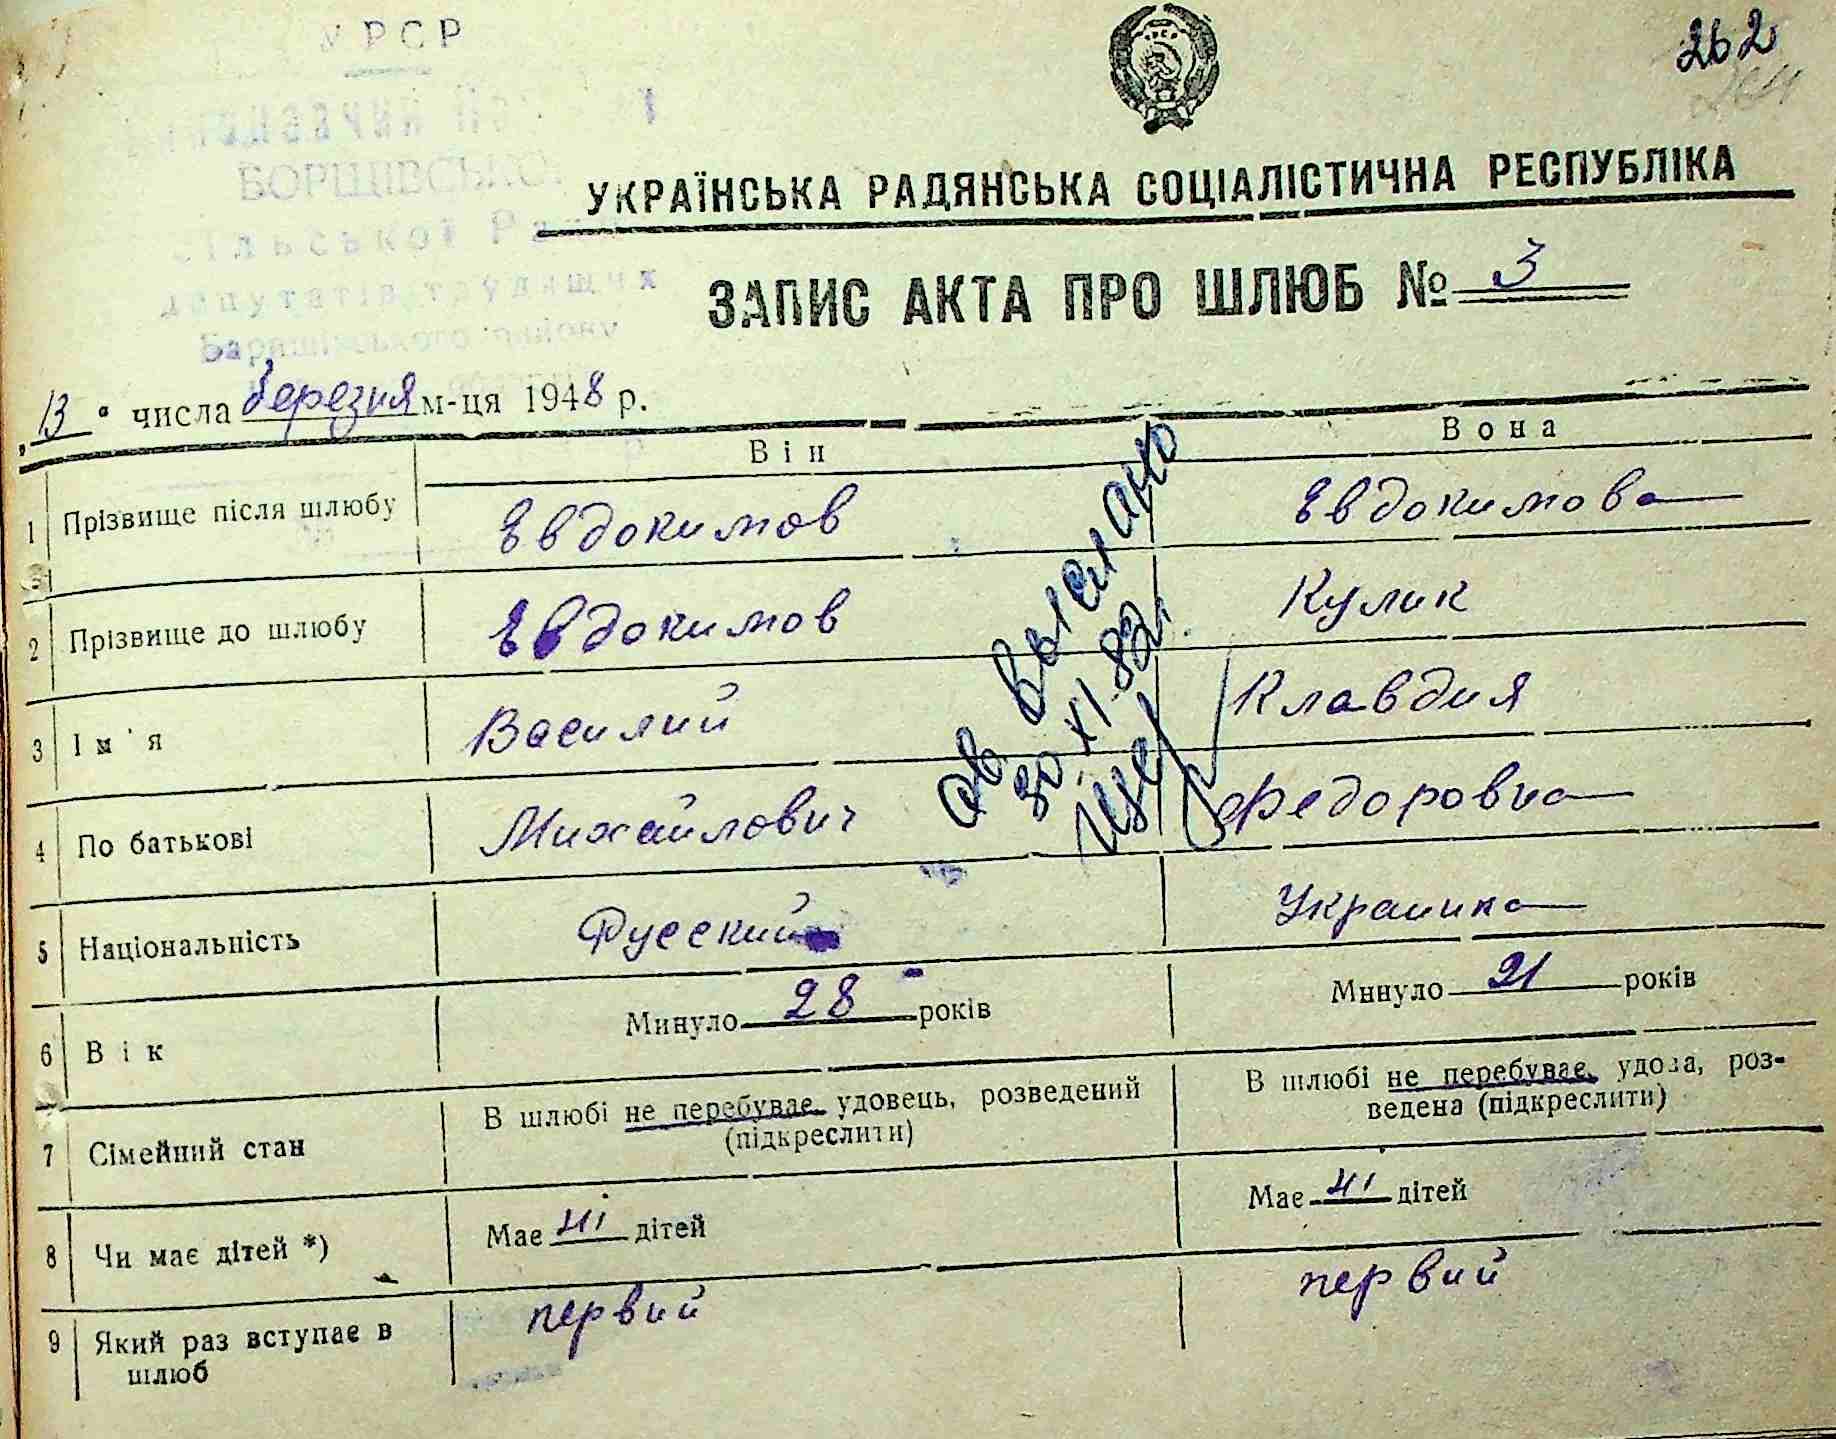 УРСР
262
БОРЩІВСЬКОЇ
сільської Ради
депутатів трудящих
Баришівського району
УКРАЇНСЬКА РАДЯНСЬКА СОЦІАЛІСТИЧНА РЕСПУБЛІКА
ЗАПИС АКТА ПРО ШЛЮБ № 3
„13“ числа березня м-ця 1948 р.
Він Вона
1 Прізвище після шлюбу Евдокимов Евдокимова
2 Прізвище до шлюбу Евдокимов Кулик
3 Ім'я Василий Клавдия
4 По батькові Михайлович Федоровна
5 Національність Русский Украинка
6 Вік Минуло 28 років Минуло 21 років
7 Сімейний стан В шлюбі не перебуває, удовець, розведений (підкреслити) В шлюбі не перебуває, удова, роз-
ведена (підкреслити)
8 Чи має дітей *) Має дітей Має дітей
9 Який раз вступає в первий первий
шлюб
выслано
30.XI.82г.